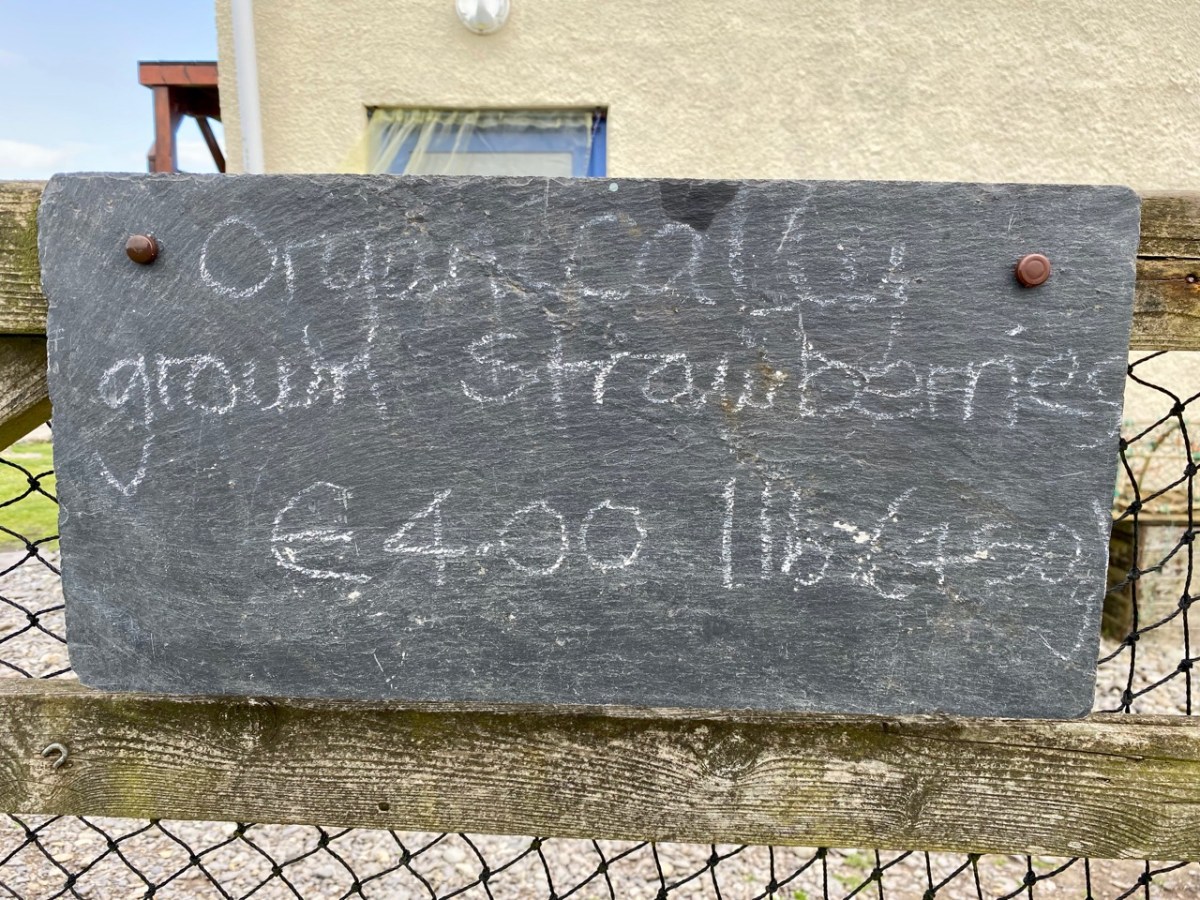 Organically
grown Strawberries
€4.00 1lb (450g